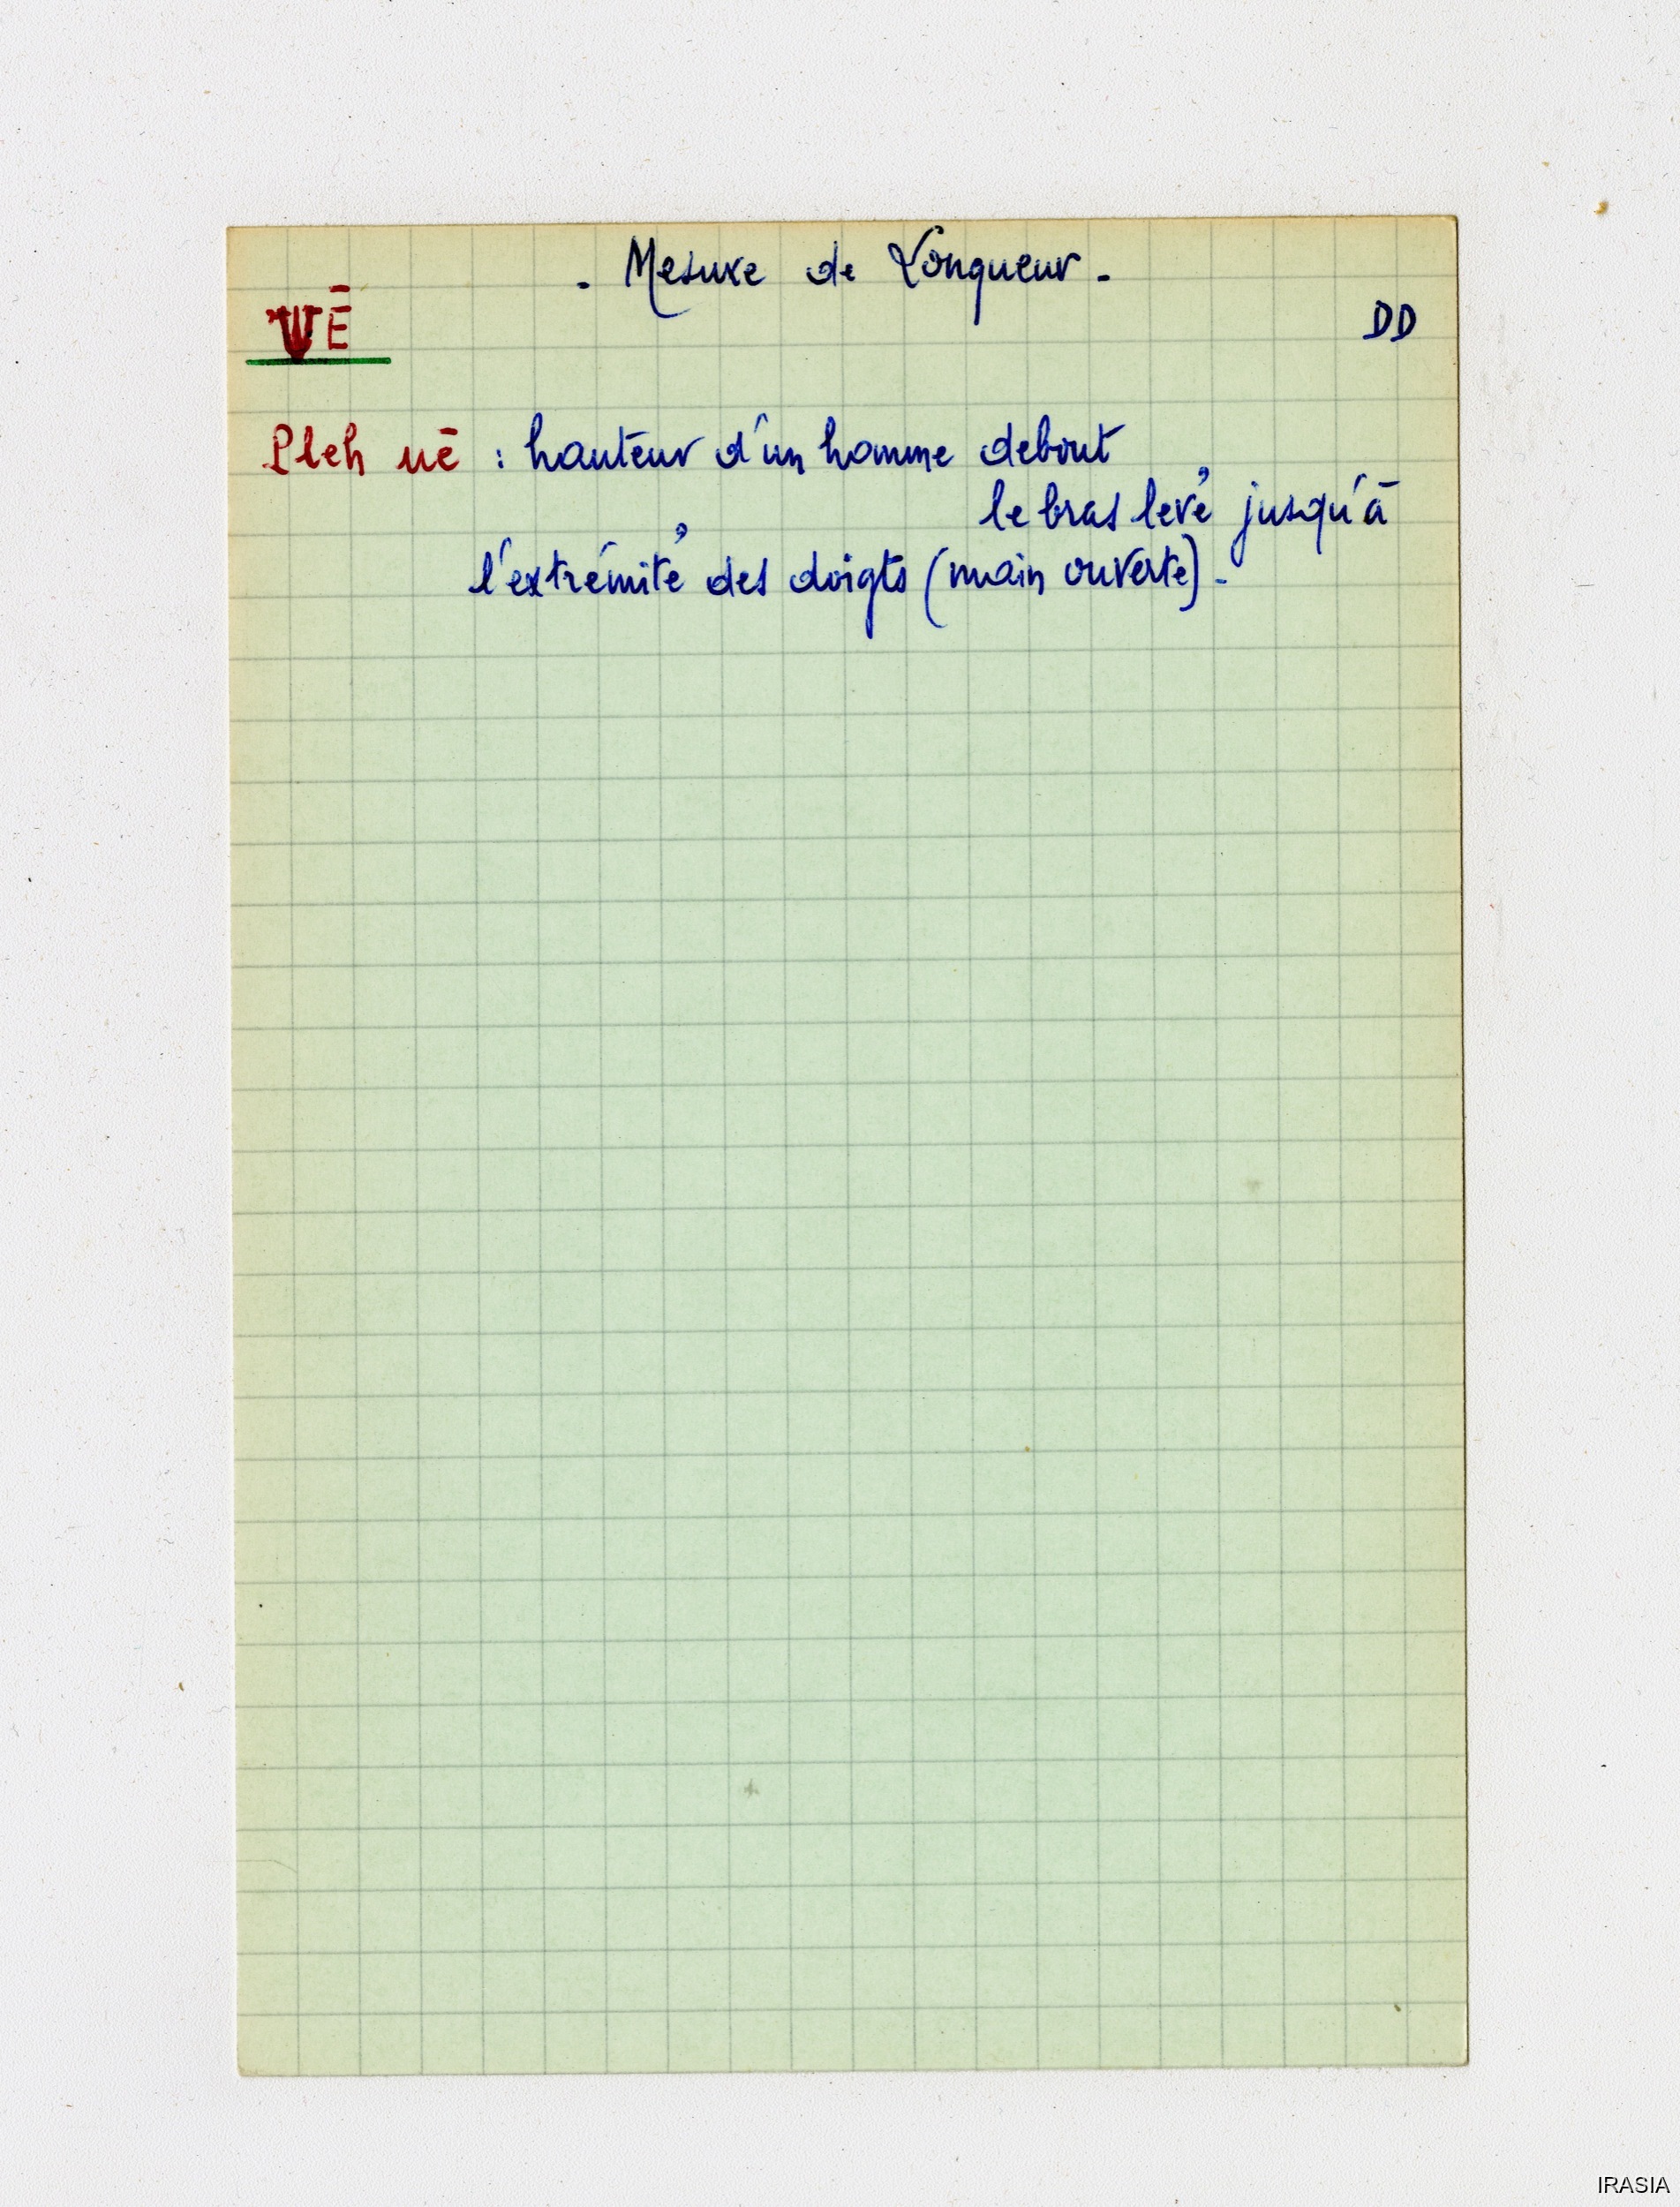 - Mesure de Longueur -
UĒ
DD
Pleh uē : hauteur d'un homme debout
le bras levé jusqu'à
l'extrémité des doigts (main ouverte).
IRASIA